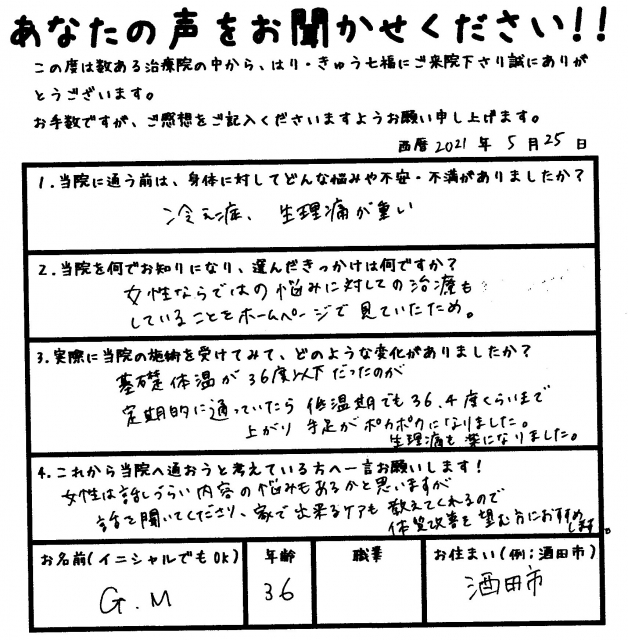 あなたの声をお聞かせください!!
この度は数ある治療院の中から、はり・きゅう七福にご来院下さり誠にありが
とうございます。
お手数ですが、ご感想をご記入くださいますようお願い申し上げます。
西暦2021年 5月25日
1.当院に通う前は、身体に対してどんな悩みや不安・不満がありましたか?
冷え症、生理痛が重い
2.当院を何でお知りになり、選んだきっかけは何ですか?
女性ならではの悩みに対しての治療も
していることをホームページで見ていたため。
3.実際に当院の施術を受けてみて、どのような変化がありましたか?
基礎体温が36度以下だったのが
定期的に通っていたら低温期でも36.4度くらいまで
上がり手足がポカポカになりました。
生理痛も楽になりました。
4.これから当院へ通おうと考えている方へ一言お願いします!
女性は話しづらい内容の悩みもあるかと思いますが
話を聞いてくださり、家で出来るケアも教えてくれるので
体質改善を望む方におすすめ
します。
お名前(イニシャルでもOK) 年齢 職業 お住まい(例;酒田市)
G.M 36 酒田市